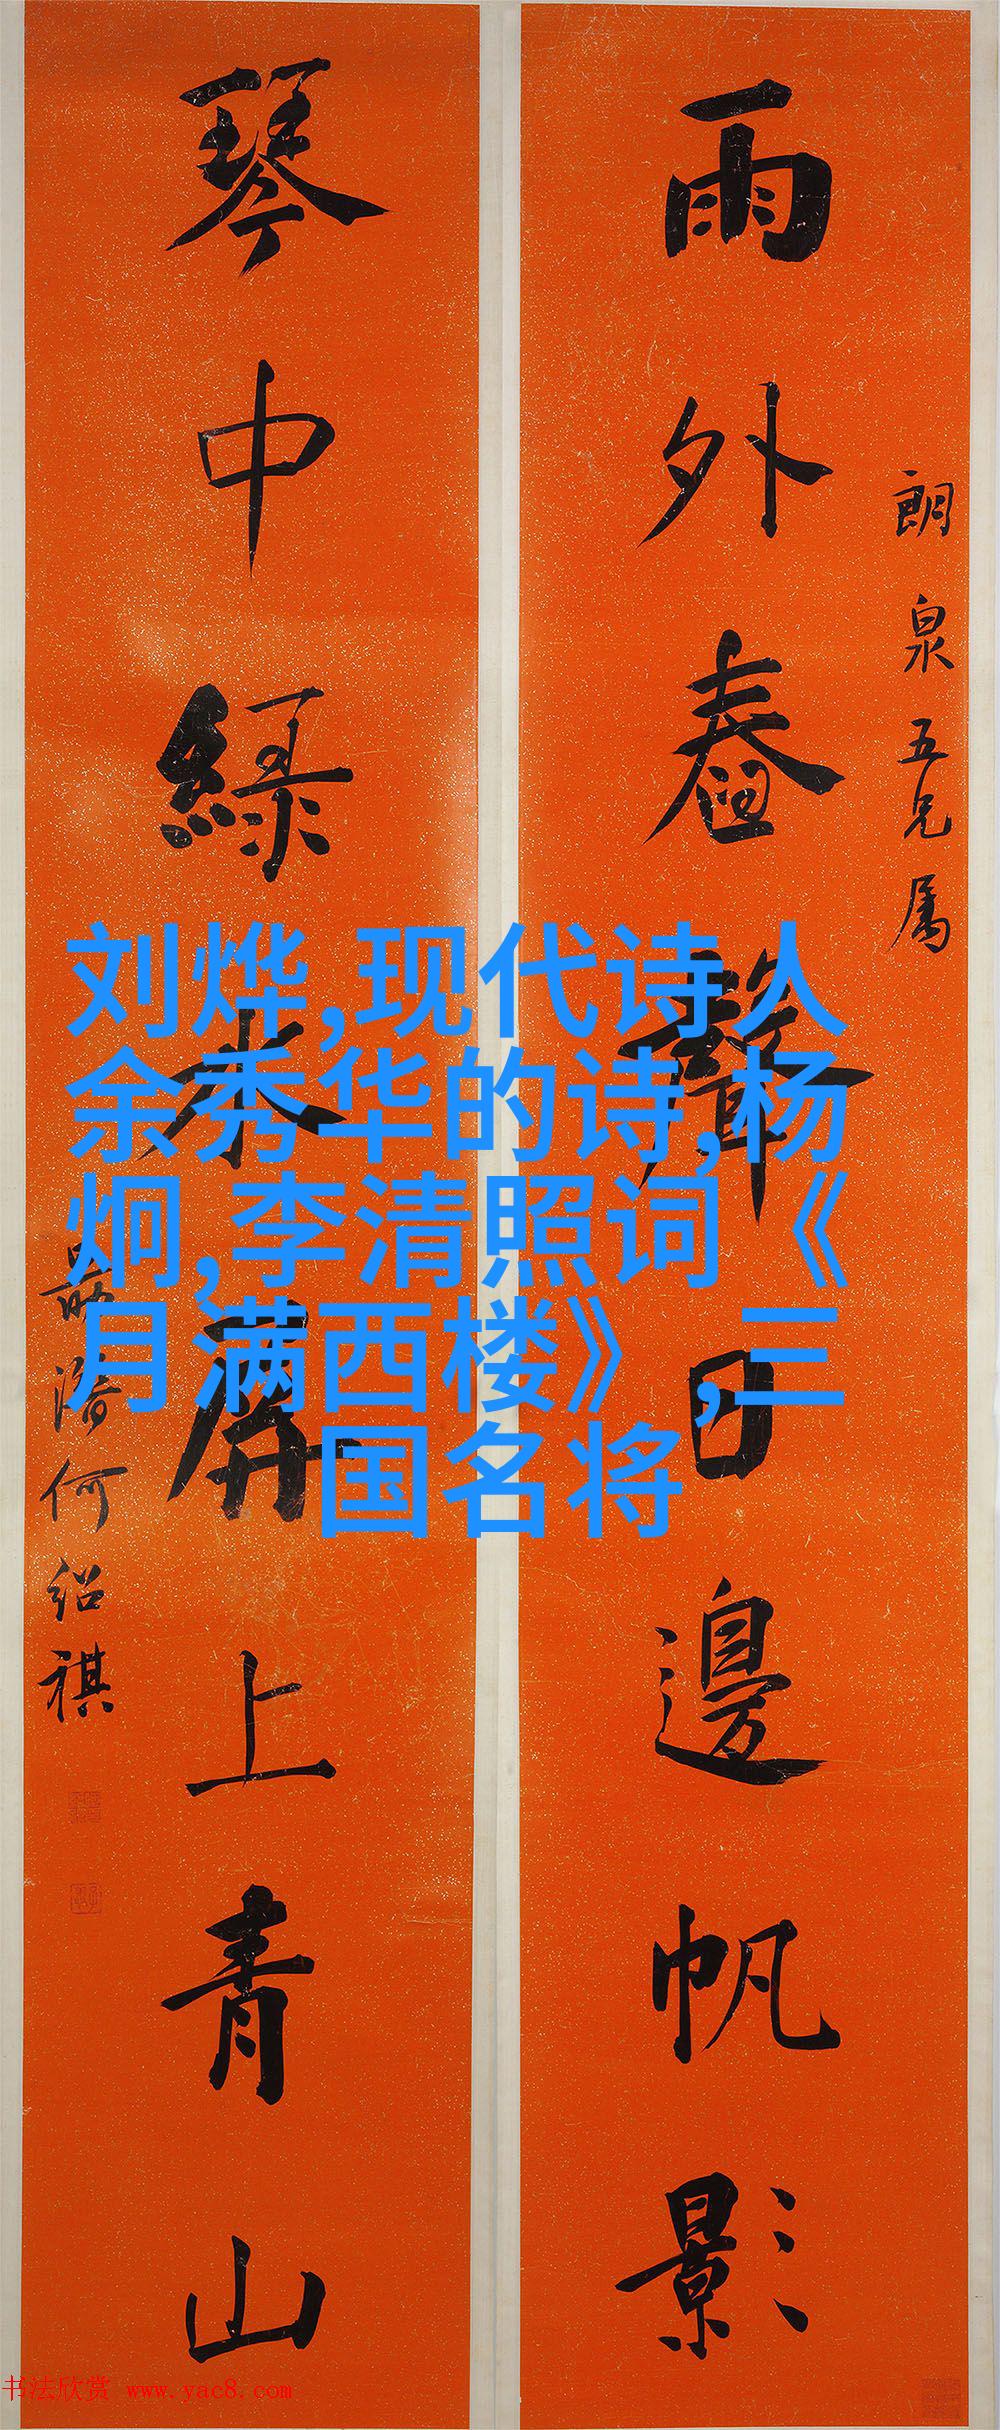 朗泉五兄属
雨外舂聲日邊帆影
琴中綠水屏上青山
何紹祺
刘烨,现代诗人
余秀华的诗,杨
炯,李清照词《
月满西楼》,三
国名将
书法欣赏 www.yac8.com